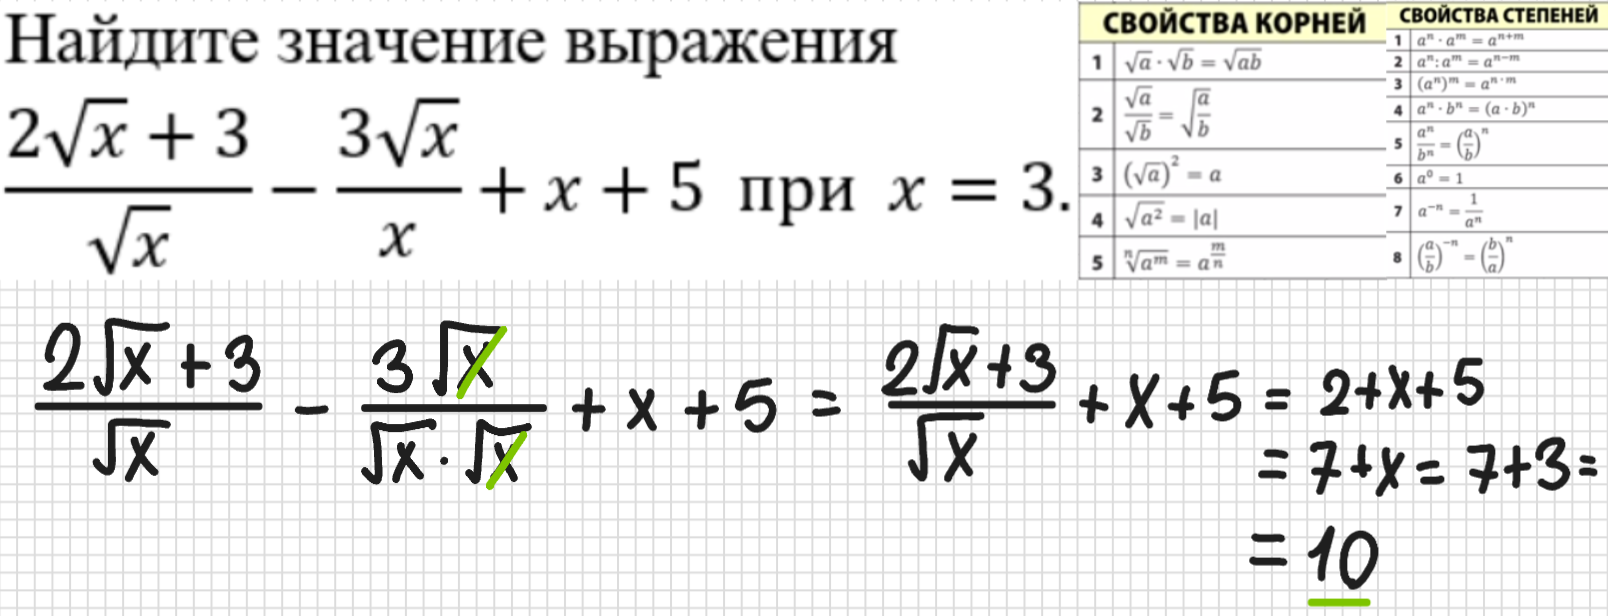 Найдите значение выражения
(2√x + 3)/√x − 3√x/x + x + 5 при x = 3.
СВОЙСТВА КОРНЕЙ
1 √a · √b = √ab
2 √a/√b = √(a/b)
3 (√a)² = a
4 √a² = |a|
5 ⁿ√aᵐ = a^(m/n)
СВОЙСТВА СТЕПЕНЕЙ
1 aⁿ · aᵐ = aⁿ⁺ᵐ
2 aⁿ : aᵐ = aⁿ⁻ᵐ
3 (aⁿ)ᵐ = aⁿ·ᵐ
4 aⁿ · bⁿ = (a · b)ⁿ
5 aⁿ/bⁿ = (a/b)ⁿ
6 a⁰ = 1
7 a⁻ⁿ = 1/aⁿ
8 (a/b)⁻ⁿ = (b/a)ⁿ
(2√x + 3)/√x − 3√x/(√x · √x) + x + 5 = (2√x + 3)/√x + x + 5 = 2 + x + 5
= 7 + x = 7 + 3 =
= 10